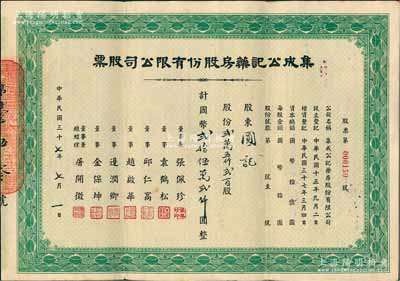 集成公記藥房股份有限公司股票
股票第 000150 號
公司名稱 集成公記藥房股份有限公司
設立登記 中華民國十五年九月二日
增資登記 中華民國三十七年三月四日
資本總額 國幣拾億圓
每股金額 國幣拾圓
股份號數 第 號至 號
股東 國記
股份 貳萬五仟貳百股
計國幣貳拾伍萬貳仟圓整
董事 張佩珍
董事 袁鶴松
董事 邱仁高
董事 趙啟華
董事 邊潤卿
董事 金保坤
董事兼總經理 屠開徵
中華民國三十七年七月一日